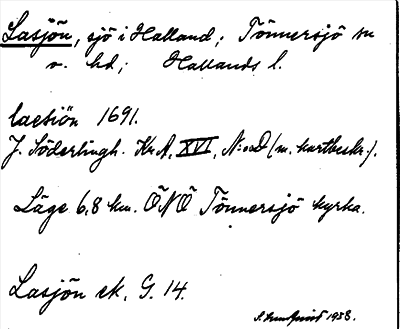 Lasjön, sjö i Halland; Tönnersjö sn
o. hd; Hallands l.
lactiön 1691.
J. Söderlingh. Kr.A. XVI, N:o D (m. kartbeskr.).
Läge 6,8 km. ÖNÖ Tönnersjö kyrka.
Lasjön ek. G. 14.
1938.